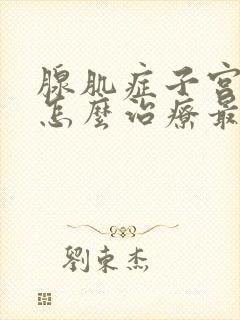 腺肌症子宫
怎麼治療最
劉東杰